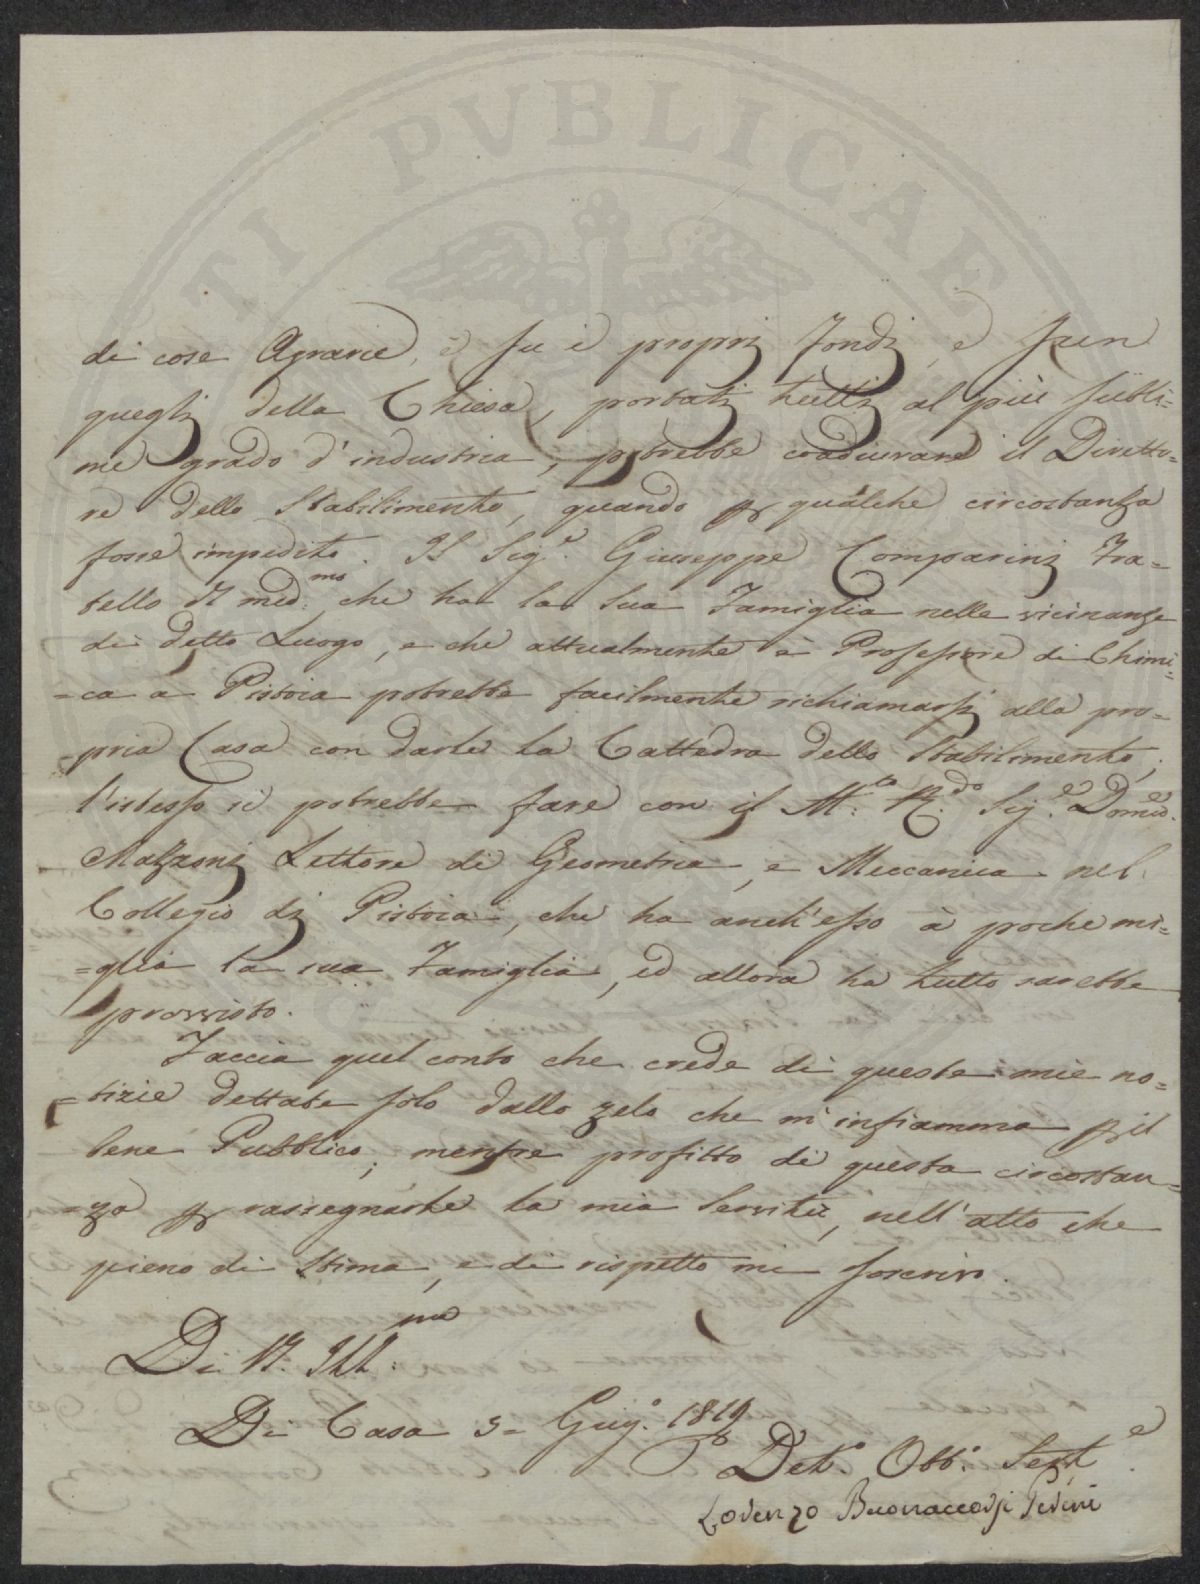 TI PVBLICAE
di cose Agrarie, e su i proprj fondj, e sun
queglj della Chiesa, portatj tuttj al più subli=
me grado d'industria, potrebbe coadiuvare il Diretto=
re dello Stabilimento, quando p qualche circostanza
fosse impedito. Il Sig.e Giuseppe Comparinj Fra=
tello Il med.mo che ha la sua Famiglia nelle vicinanze
di detto Luogo, e che attualmente è Professore di Chimi=
=ca a Pistoia potrebbe facilmente richiamarsj alla pro=
=pria Casa con darle la Cattedra dello Stabilimento;
l'istesso si potrebbe fare con il M.to R.do Sig.e Dom.co
Mazzonj Lettore di Geometria, e Meccanica nel
Collegio dj Pistoia, che ha anch'esso à poche mi=
=glia la sua Famiglia, ed allora ha tutto sarebbe
provvisto.
Faccia quel conto che crede di queste mie no=
=tizie dettate solo dallo zelo che m'infiamma p il
bene Pubblico; mentre profitto di questa circostan=
=za p rassegnarle la mia servitù, nell'atto che
pieno di stima, e di rispetto mi soscrivo.
Di V. Ill.ma
Di Casa 5= Giug.o 1819
Dev.o Obb.o Serv.e
Lorenzo Buonaccorsi Perini